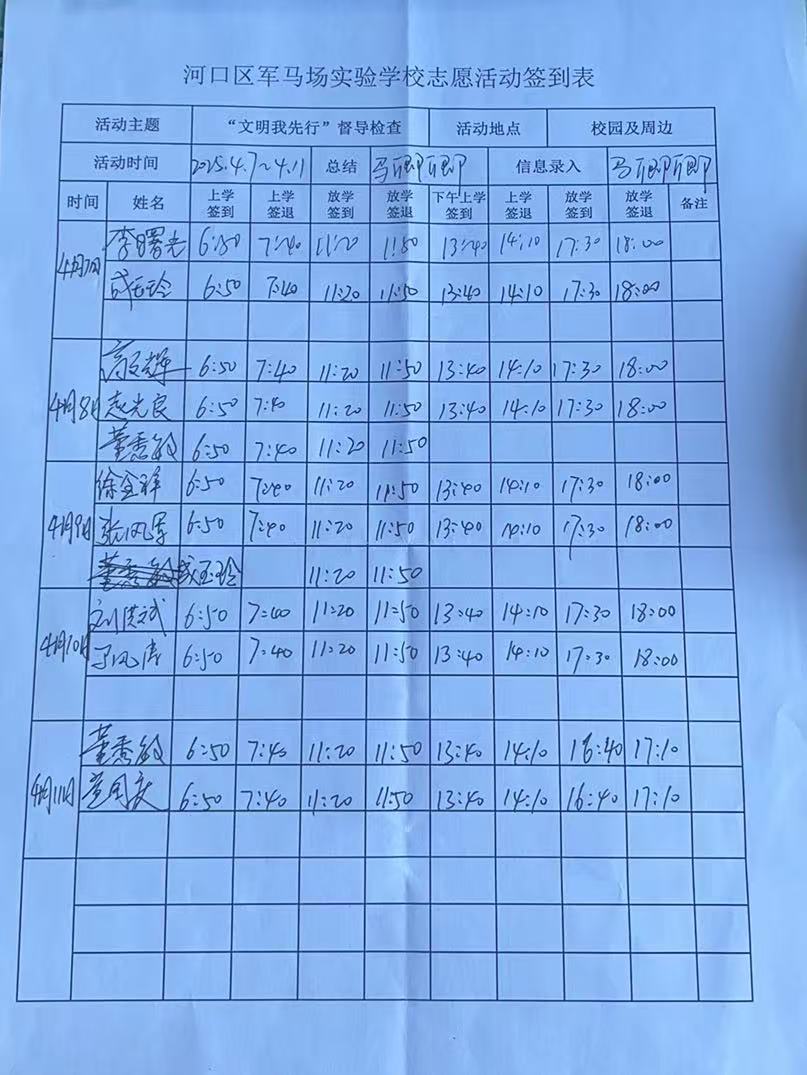 河口区军马场实验学校志愿活动签到表
活动主题 “文明我先行”督导检查 活动地点 校园及周边
活动时间 2025.4.7~4.11 总结 马 信息录入 马
时间 姓名 上学签到 上学签退 放学签到 放学签退 下午上学签到 上学签退 放学签到 放学签退 备注
4月7日 李曙光 6:50 7:40 11:20 11:50 13:40 14:10 17:30 18:00
成玉玲 6:50 7:40 11:20 11:50 13:40 14:10 17:30 18:00
4月8日 6:50 7:40 11:20 11:50 13:40 14:10 17:30 18:00
赵光良 6:50 7:40 11:20 11:50 13:40 14:10 17:30 18:00
董秀敏 6:50 7:40 11:20 11:50
4月9日 徐金祥 6:50 7:40 11:20 11:50 13:40 14:10 17:30 18:00
张风军 6:50 7:40 11:20 11:50 13:40 14:10 17:30 18:00
成玉玲 11:20 11:50
4月10日 刘洪斌 6:50 7:40 11:20 11:50 13:40 14:10 17:30 18:00
6:50 7:40 11:20 11:50 13:40 14:10 17:30 18:00
4月11日 董秀敏 6:50 7:40 11:20 11:50 13:40 14:10 16:40 17:10
6:50 7:40 11:20 11:50 13:40 14:10 16:40 17:10